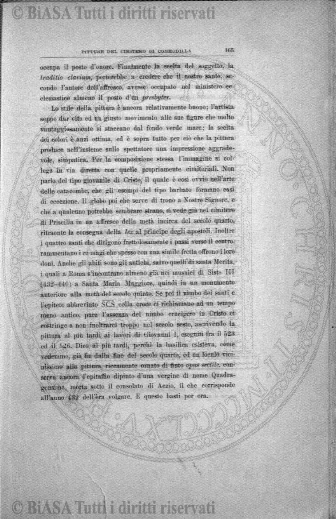 © BiASA Tutti i diritti riservati
PITTURE DEL CIMITERO DI COMMODILLA 165
occupa il posto d'onore. Finalmente la scelta del soggetto, la
traditio clavium, porterebbe a credere che il nostro santo, se-
condo l'autore dell'affresco, avesse occupato nel ministero ec-
clesiastico almeno il posto d'un presbyter.
Lo stile della pittura è ancora relativamente buono; l'artista
seppe dar vita ed un giusto movimento alle sue figure che molto
vantaggiosamente si staccano dal fondo verde mare; la scelta
dei colori è anzi ottima, ed è sopra tutto per ciò che la pittura
produce nell'insieme sullo spettatore una impressione aggrade-
vole, simpatica. Per la composizione stessa l'immagine si col-
lega in via diretta con quelle propriamente cimiteriali. Non
parlo del tipo giovanile di Cristo, il quale è così ovvio nell'arte
delle catacombe, che gli esempi del tipo barbato formano casi
di eccezione. Il globo poi che serve di trono a Nostro Signore, e
che a qualcuno potrebbe sembrare strano, si vede già nel cimitero
di Priscilla in un affresco della metà incirca del secolo quarto,
ritraente la consegna della lex al principe degli apostoli. Inoltre
i quattro santi che dirigono frettolosamente i passi verso il centro,
rammentano i re magi che spesso con una simile fretta offrono i loro
doni. Anche gli abiti sono gli antichi, salvo quelli di santa Merita,
i quali a Roma s'incontrano almeno già nei mosaici di Sisto III
(432-440) a Santa Maria Maggiore, quindi in un monumento
anteriore alla metà del secolo quinto. Se poi il nimbo dei santi e
l'epiteto abbreviato SCS colla croce ci richiamano ad un tempo
meno antico, pure l'assenza del nimbo crucigero in Cristo ci
costringe a non inoltrarci troppo nel secolo sesto, ascrivendo la
pittura al più tardi ai lavori di Giovanni I, eseguiti fra il 523
ed il 526. Dico al più tardi, perchè la basilica esisteva, come
vedemmo, già fin dalla fine del secolo quarto, ed un locale vici-
nissimo alla pittura, riccamente ornato di finto opus sectile, con-
serva ancora l'epitaffio dipinto d'una vergine di nome Quadra-
gensima, morta sotto il consolato di Aezio, il che corrisponde
all'anno 432 dell'èra volgare. E questo basti per ora.
© BiASA Tutti i diritti riservati